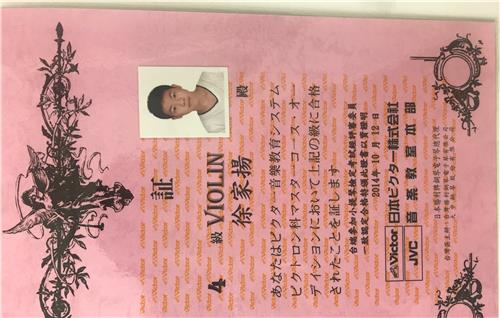 証
4 級 VIOLIN
徐家揚 殿
あなたはビクター音楽教育システム
ビクトロン科マスターコース・オー
ディションにおいて上記の級に合格
されたことを証します
台端参加小提琴検定考試経評審委員
一致認定合格特頒此証書以資證明
2014年10月12日
Victor 日本ビクター株式会社
JVC 音楽教室本部